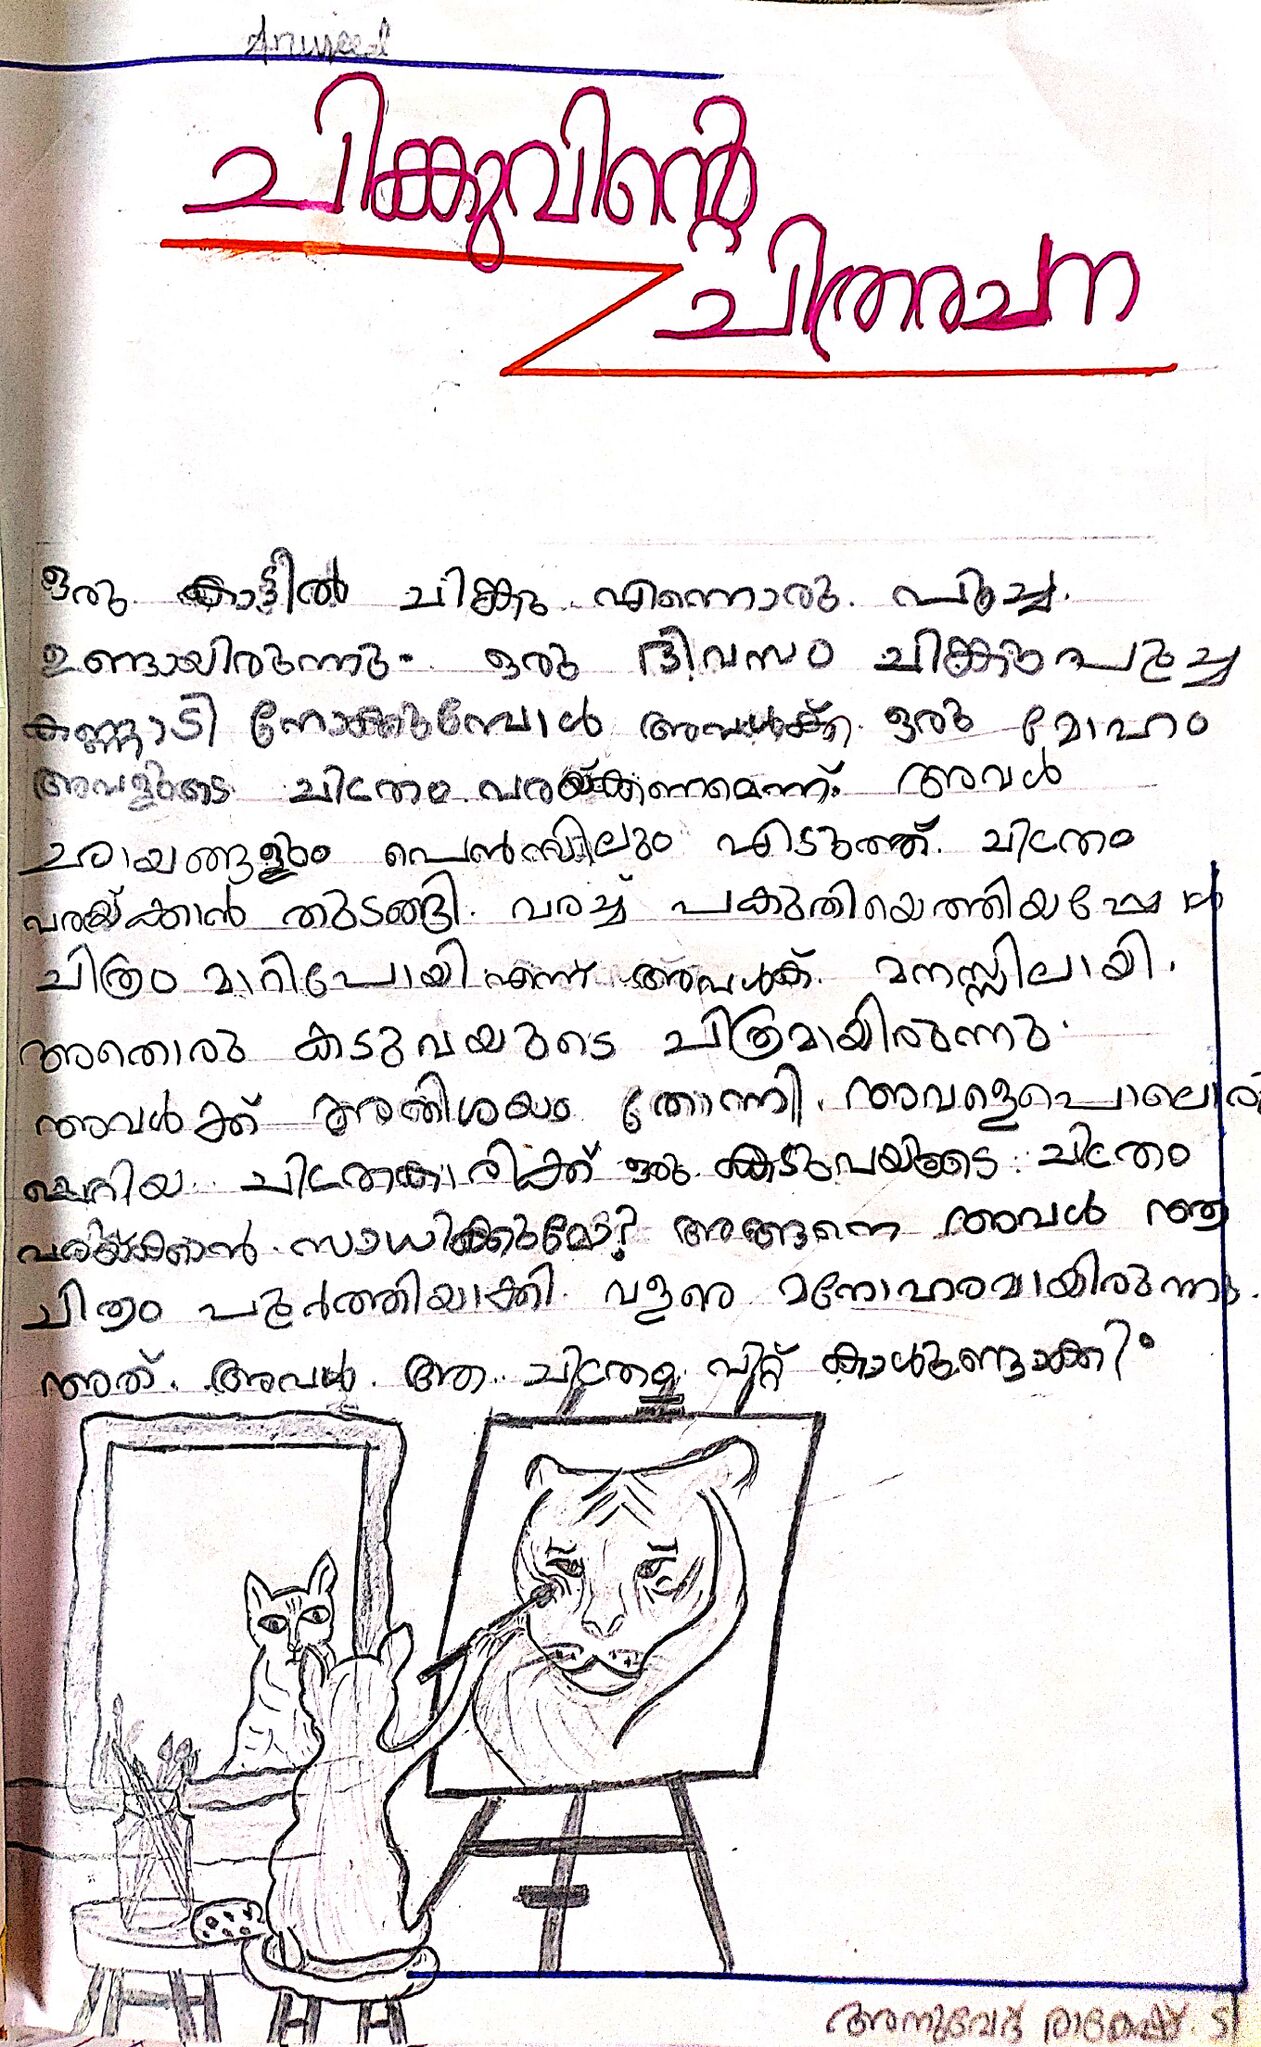 ചിക്കുവിന്റെ
ചിത്രരചന
ഒരു കാട്ടിൽ ചിങ്കു എന്നൊരു പൂച്ച
ഉണ്ടായിരുന്നു. ഒരു ദിവസം ചിങ്കു പൂച്ച
കണ്ണാടി നോക്കുമ്പോൾ അവൾക്ക് ഒരു മോഹം
അവളുടെ ചിത്രം വരയ്ക്കണമെന്ന്. അവൾ
ഛായങ്ങളും പെൻസിലും എടുത്ത്. ചിത്രം
വരയ്ക്കാൻ തുടങ്ങി. വരച്ച് പകുതിയെത്തിയപ്പോൾ
ചിത്രം മാറിപോയി എന്ന് അവൾക് മനസ്സിലായി.
അതൊരു കടുവയുടെ ചിത്രമായിരുന്നു.
അവൾക്ക് അതിശയം തോന്നി. അവളെപൊലൊരു
ചെറിയ ചിത്രക്കാരിക്ക് ഒരു കടുവയുടെ ചിത്രം
വരയ്ക്കാൻ സാധിക്കുമോ? അങ്ങനെ അവൾ ആ
ചിത്രം പൂർത്തിയാക്കി. വളരെ മനോഹരമായിരുന്നു.
അത്. അവൾ ആ ചിത്രം വിറ്റ് കാശുണ്ടാക്കി.
അനുവേദ് രാകേഷ്. ടി